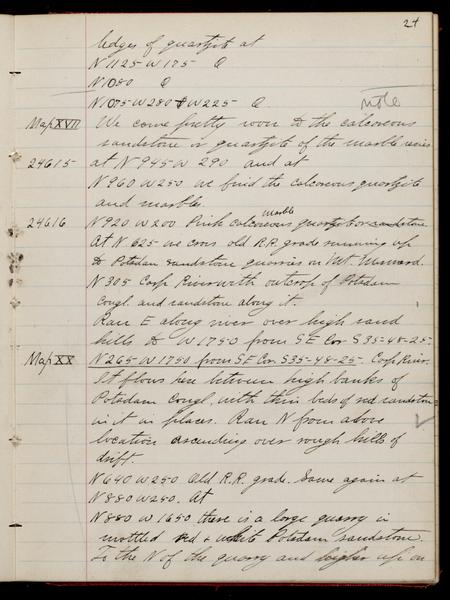 24
ledges of quartzite at
N 1125 W 175 Q
N 1080 Q
N 1075 W 280 & W 225 Q. note
Map XVII We come pretty soon to the calcareous
sandstone or quartzite of the marble series
24615 at N 945 W 290 and at
N 960 W 250 we find the calcareous quartzite
and marble.
24616 N 920 W 200 Pink calcareous marble quartzite or sandstone.
At N 625 we cross old R.R. grade running up
to Potsdam sandstone quarries on Mt. Menard.
N 305 Carp River with outcrop of Potsdam
Congl. and sandstone along it.
Ran E along river over high sand
hills to W 1750 from SE Cor S 35-48-25.
Map XX N 265 W 1750 from S E Cor. S 35-48-25. Carp River.
It flows here between high banks of
Potsdam Congl. with thin beds of red sandstone
in it in places. Ran N from above
location ascending over rough hills of
drift.
N 640 W 250 Old R.R. grade. Same again at
N 880 W 250. At
N 880 W 1650 there is a large quarry in
mottled red & white Potsdam sandstone.
To the N of the quarry and higher up on